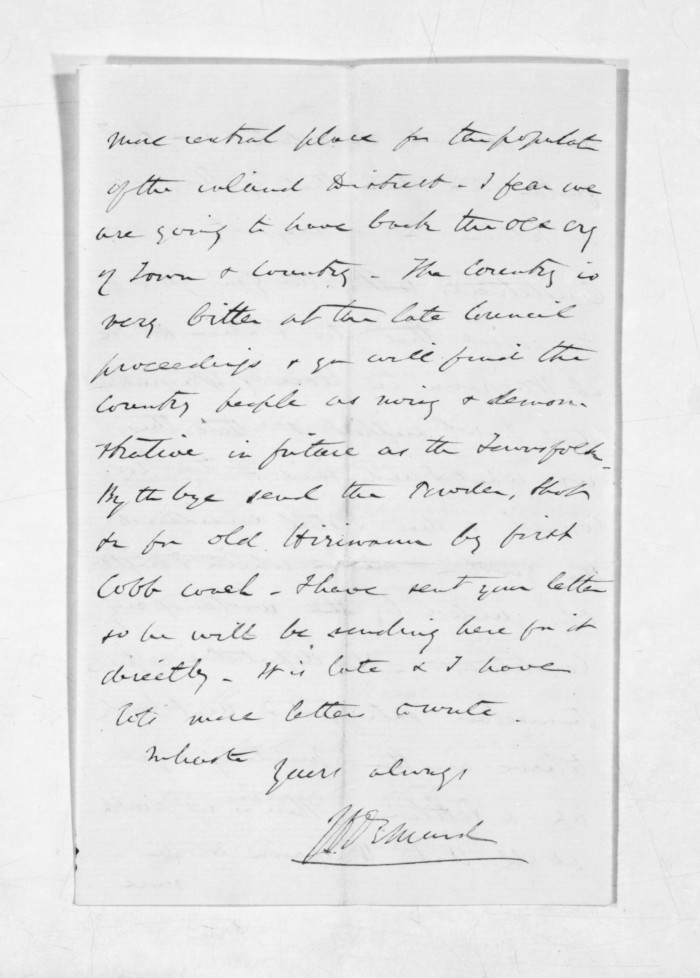 more central place for the populat
of the inland District - I fear we
are going to have back the old cry
of Town & Country - The Country is
very bitter at the late Council
proceedings & you will find the
Country people as noisy & demon-
strative in future as the Townsfolk -
By the bye send the Powder, Shot
&c for old Hiriwanu by first
Cobb coach - I have sent your letter
so he will be sending here for it
directly - It is late & I have
lots more letters to write.
In haste
Yours always